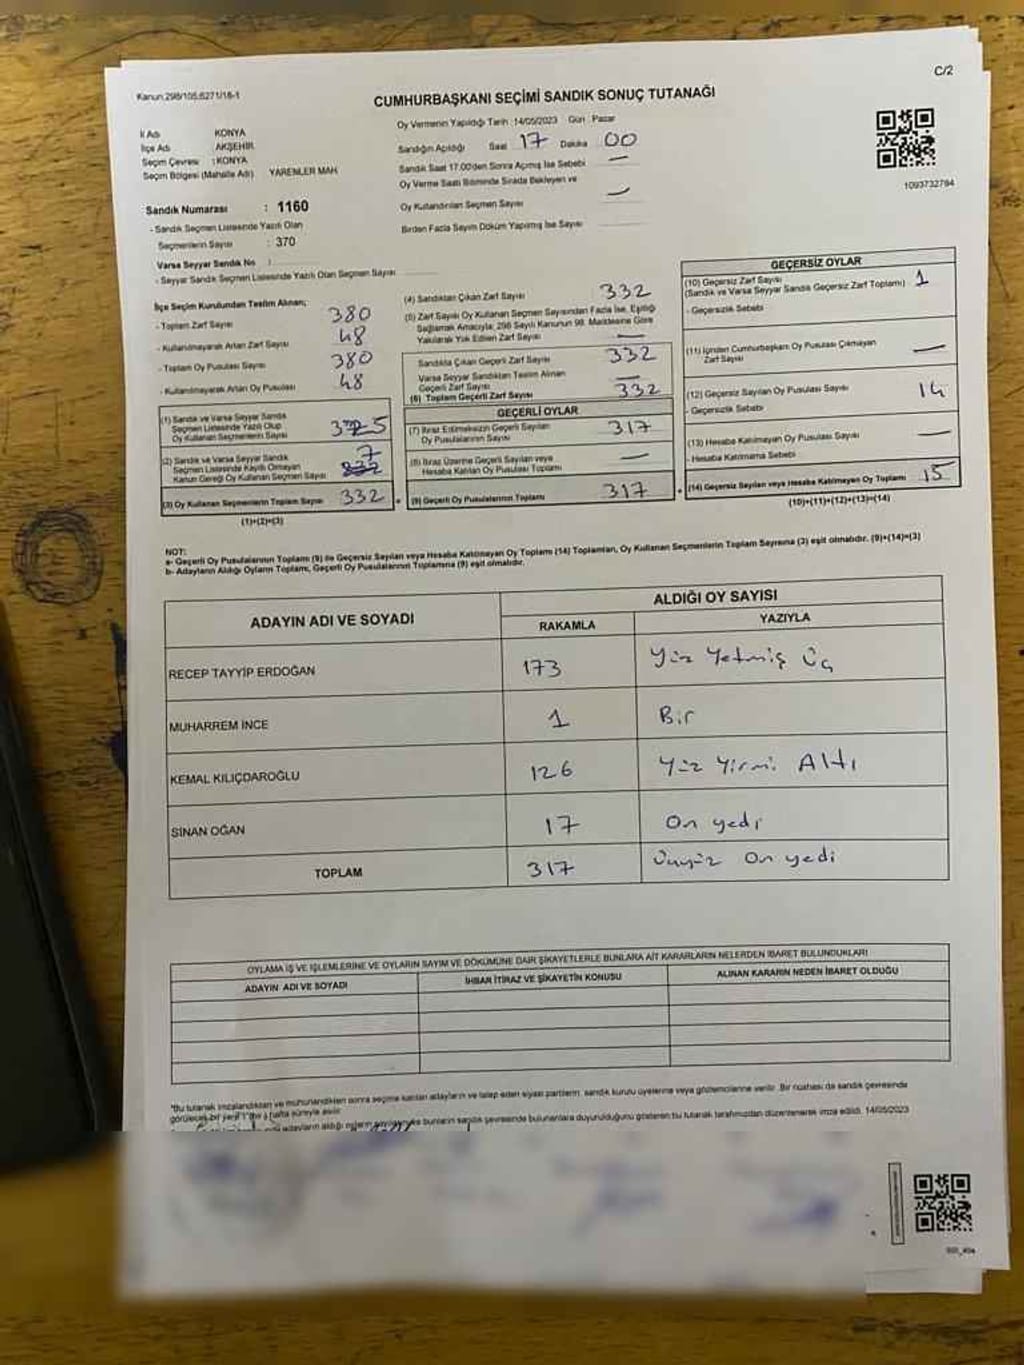 Kanun:298/105,6271/18-1
C/2
CUMHURBAŞKANI SEÇİMİ SANDIK SONUÇ TUTANAĞI
İl Adı KONYA
İlçe Adı AKŞEHİR
Seçim Çevresi : KONYA
Seçim Bölgesi (Mahalle Adı) YARENLER MAH
Sandık Numarası : 1160
- Sandık Seçmen Listesinde Yazılı Olan
Seçmenlerin Sayısı : 370
Varsa Seyyar Sandık No :
- Seyyar Sandık Seçmen Listesinde Yazılı Olan Seçmen Sayısı
Oy Vermenin Yapıldığı Tarih : 14/05/2023 Gün : Pazar
Sandığın Açıldığı Saat 17 Dakika 00
Sandık Saat 17.00'den Sonra Açılmış İse Sebebi —
Oy Verme Saati Bitiminde Sırada Bekleyen ve
Oy Kullandırılan Seçmen Sayısı —
Birden Fazla Sayım Döküm Yapılmış İse Sayısı
1093732784
İlçe Seçim Kurulundan Teslim Alınan;
- Toplam Zarf Sayısı 380
- Kullanılmayarak Artan Zarf Sayısı 48
- Toplam Oy Pusulası Sayısı 380
- Kullanılmayarak Artan Oy Pusulası 48
(1) Sandık ve Varsa Seyyar Sandık
Seçmen Listesinde Yazılı Olup
Oy Kullanan Seçmenlerin Sayısı 325
(2) Sandık ve Varsa Seyyar Sandık
Seçmen Listesinde Kayıtlı Olmayan
Kanun Gereği Oy Kullanan Seçmen Sayısı 7
332
(3) Oy Kullanan Seçmenlerin Toplam Sayısı 332
(1)+(2)=(3)
(4) Sandıktan Çıkan Zarf Sayısı 332
(5) Zarf Sayısı Oy Kullanan Seçmen Sayısından Fazla İse, Eşitliği
Sağlamak Amacıyla; 298 Sayılı Kanunun 98. Maddesine Göre
Yakılarak Yok Edilen Zarf Sayısı —
Sandıkta Çıkan Geçerli Zarf Sayısı 332
Varsa Seyyar Sandıktan Teslim Alınan
Geçerli Zarf Sayısı —
(6) Toplam Geçerli Zarf Sayısı 332
GEÇERLİ OYLAR
(7) İtiraz Edilmeksizin Geçerli Sayılan
Oy Pusulalarının Sayısı 317
(8) İtiraz Üzerine Geçerli Sayılan veya
Hesaba Katılan Oy Pusulası Toplamı —
(9) Geçerli Oy Pusulalarının Toplamı 317
GEÇERSİZ OYLAR
(10) Geçersiz Zarf Sayısı
(Sandık ve Varsa Seyyar Sandık Geçersiz Zarf Toplamı) 1
- Geçersizlik Sebebi
(11) İçinden Cumhurbaşkanı Oy Pusulası Çıkmayan
Zarf Sayısı —
(12) Geçersiz Sayılan Oy Pusulası Sayısı 14
- Geçersizlik Sebebi
(13) Hesaba Katılmayan Oy Pusulası Sayısı —
- Hesaba Katılmama Sebebi
(14) Geçersiz Sayılan veya Hesaba Katılmayan Oy Toplamı 15
(10)+(11)+(12)+(13)=(14)
NOT:
a- Geçerli Oy Pusulalarının Toplamı (9) ile Geçersiz Sayılan veya Hesaba Katılmayan Oy Toplamı (14) Toplamları, Oy Kullanan Seçmenlerin Toplam Sayısına (3) eşit olmalıdır. (9)+(14)=(3)
b- Adayların Aldığı Oyların Toplamı, Geçerli Oy Pusulalarının Toplamına (9) eşit olmalıdır.
ADAYIN ADI VE SOYADI
ALDIĞI OY SAYISI
RAKAMLA YAZIYLA
RECEP TAYYİP ERDOĞAN 173 Yüz Yetmiş Üç
MUHARREM İNCE 1 Bir
KEMAL KILIÇDAROĞLU 126 Yüz Yirmi Altı
SİNAN OĞAN 17 On yedi
TOPLAM 317 Üçyüz On yedi
OYLAMA İŞ VE İŞLEMLERİNE VE OYLARIN SAYIM VE DÖKÜMÜNE DAİR ŞİKAYETLERLE BUNLARA AİT KARARLARIN NELERDEN İBARET BULUNDUKLARI
ADAYIN ADI VE SOYADI İHBAR İTİRAZ VE ŞİKAYETİN KONUSU ALINAN KARARIN NEDEN İBARET OLDUĞU
*Bu tutanak imzalandıktan ve mühürlendikten sonra seçime katılan adayların ve talep eden siyasi partilerin sandık kurulu üyelerine veya gözlemcilerine verilir. Bir nüshası da sandık çevresinde
görülecek bir yere 1 (bir) hafta süreyle asılır.
adayların aldığı oyların bunların sandık çevresinde bulunanlara duyurulduğunu gösteren bu tutanak tarafımızdan düzenlenerek imza edildi. 14/05/2023